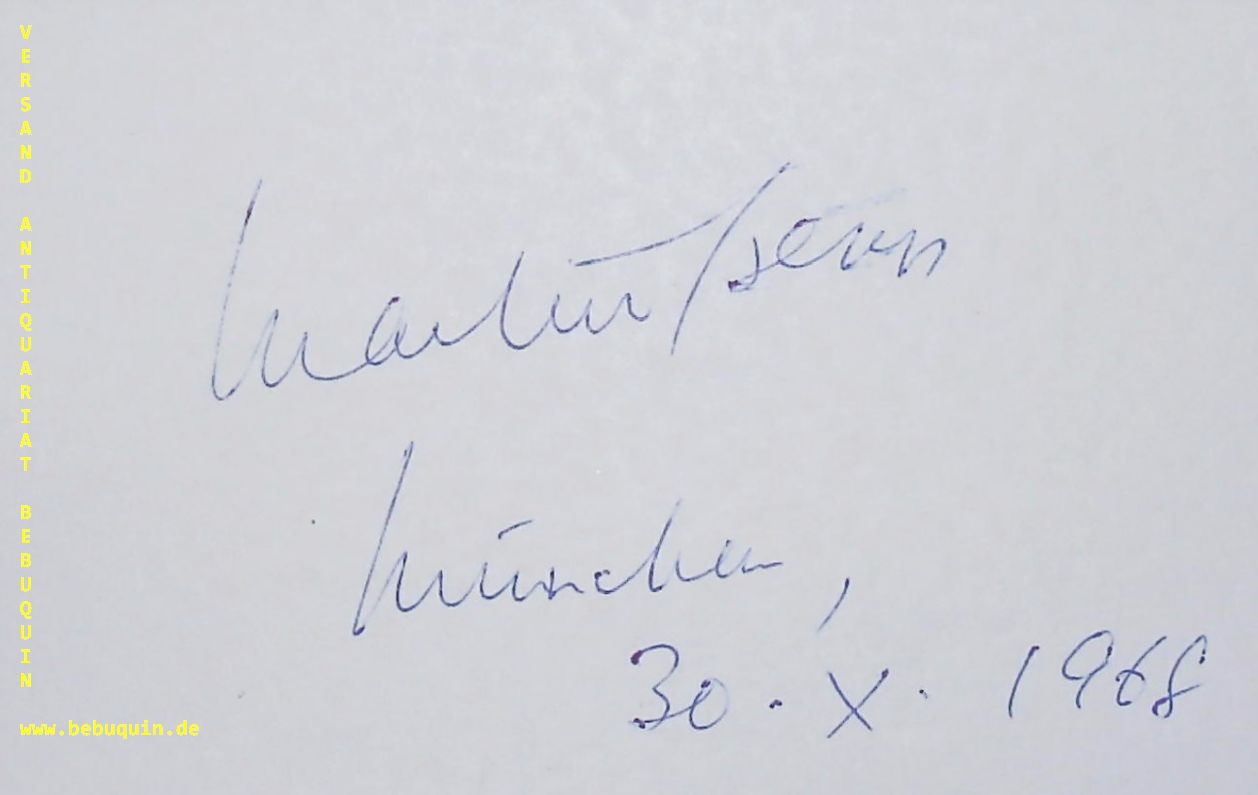 VERSAND ANTIQUARIAT BEBUQUIN
Martin
München,
30. X. 1968
www.bebuquin.de